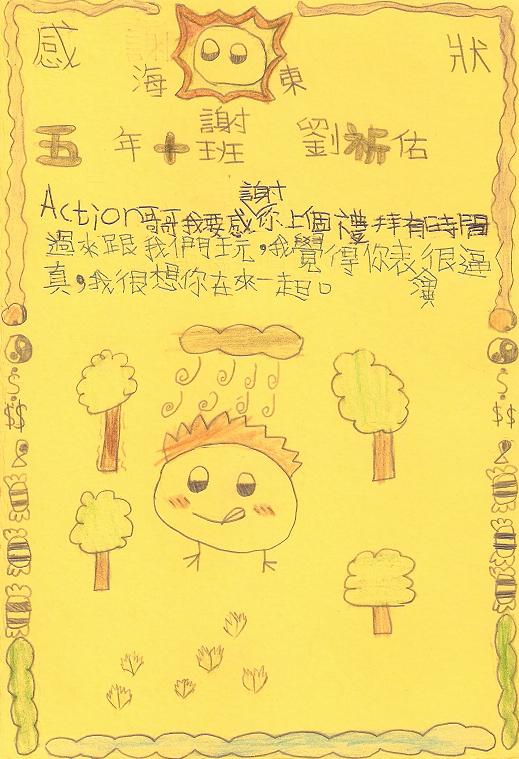 感謝狀
海東
五年十班 劉祈佑
Action哥哥我要感謝你上個禮拜有時間
過來跟我們玩,我覺得你表演很逼
真,我很想你在來一起。
$$ $$